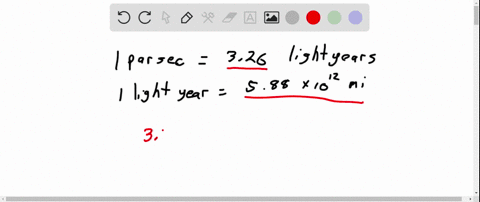 1 parsec = 3.26 lightyears
1 light year = 5.88 × 10¹² mi
3.